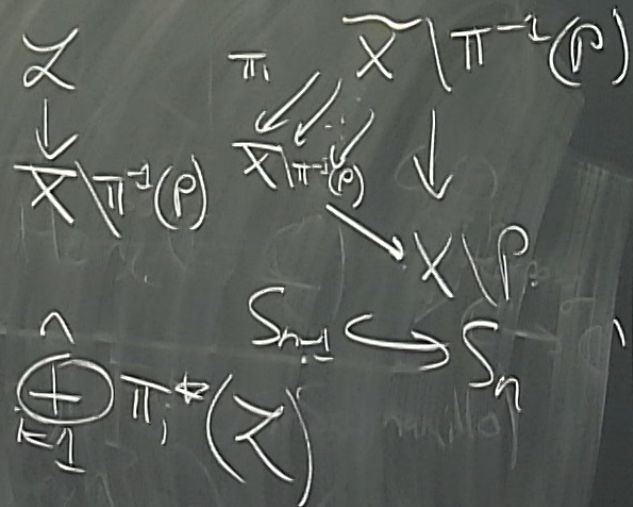 ℒ π_i X̃ \ π⁻¹(p)
↓ ↙ ↙ ⋯ ↙ ↓
X̄ \ π⁻¹(p) X̄ \ π⁻¹(p) ↘ X \ p
S_{n-1} ↪ S_n
⊕_{i=1}^{n} π_i^*(ℒ)